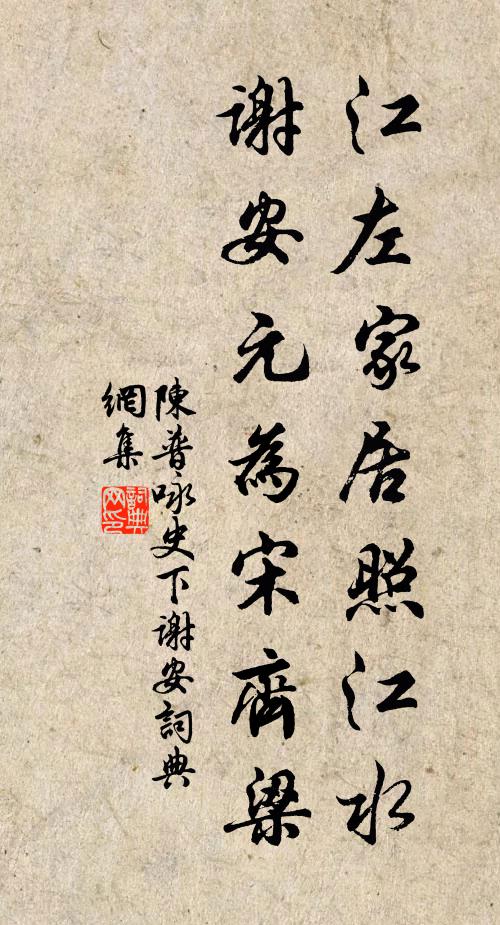 江左家居照江水
謝安元為宋齊梁
陳普咏史下謝安詞典
網集
詞典
网印